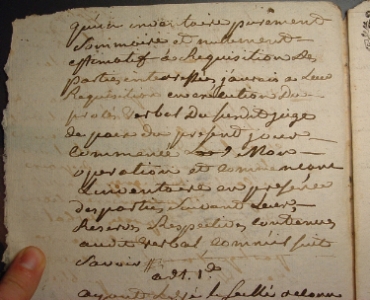 qu'un inventaire purement
Sommaire et nullement
estimatif a Requisition des
parties interessées, j'aurois a leur
Requisition en execution du
procès verbal du susdit juge
de paix du present jour
commencé mon
operation et commencant
L'inventaire en presence
des parties Suivant leurs
Reserves Respectives contenues
audit verbal, comme suit
Savoir
art. 1.er